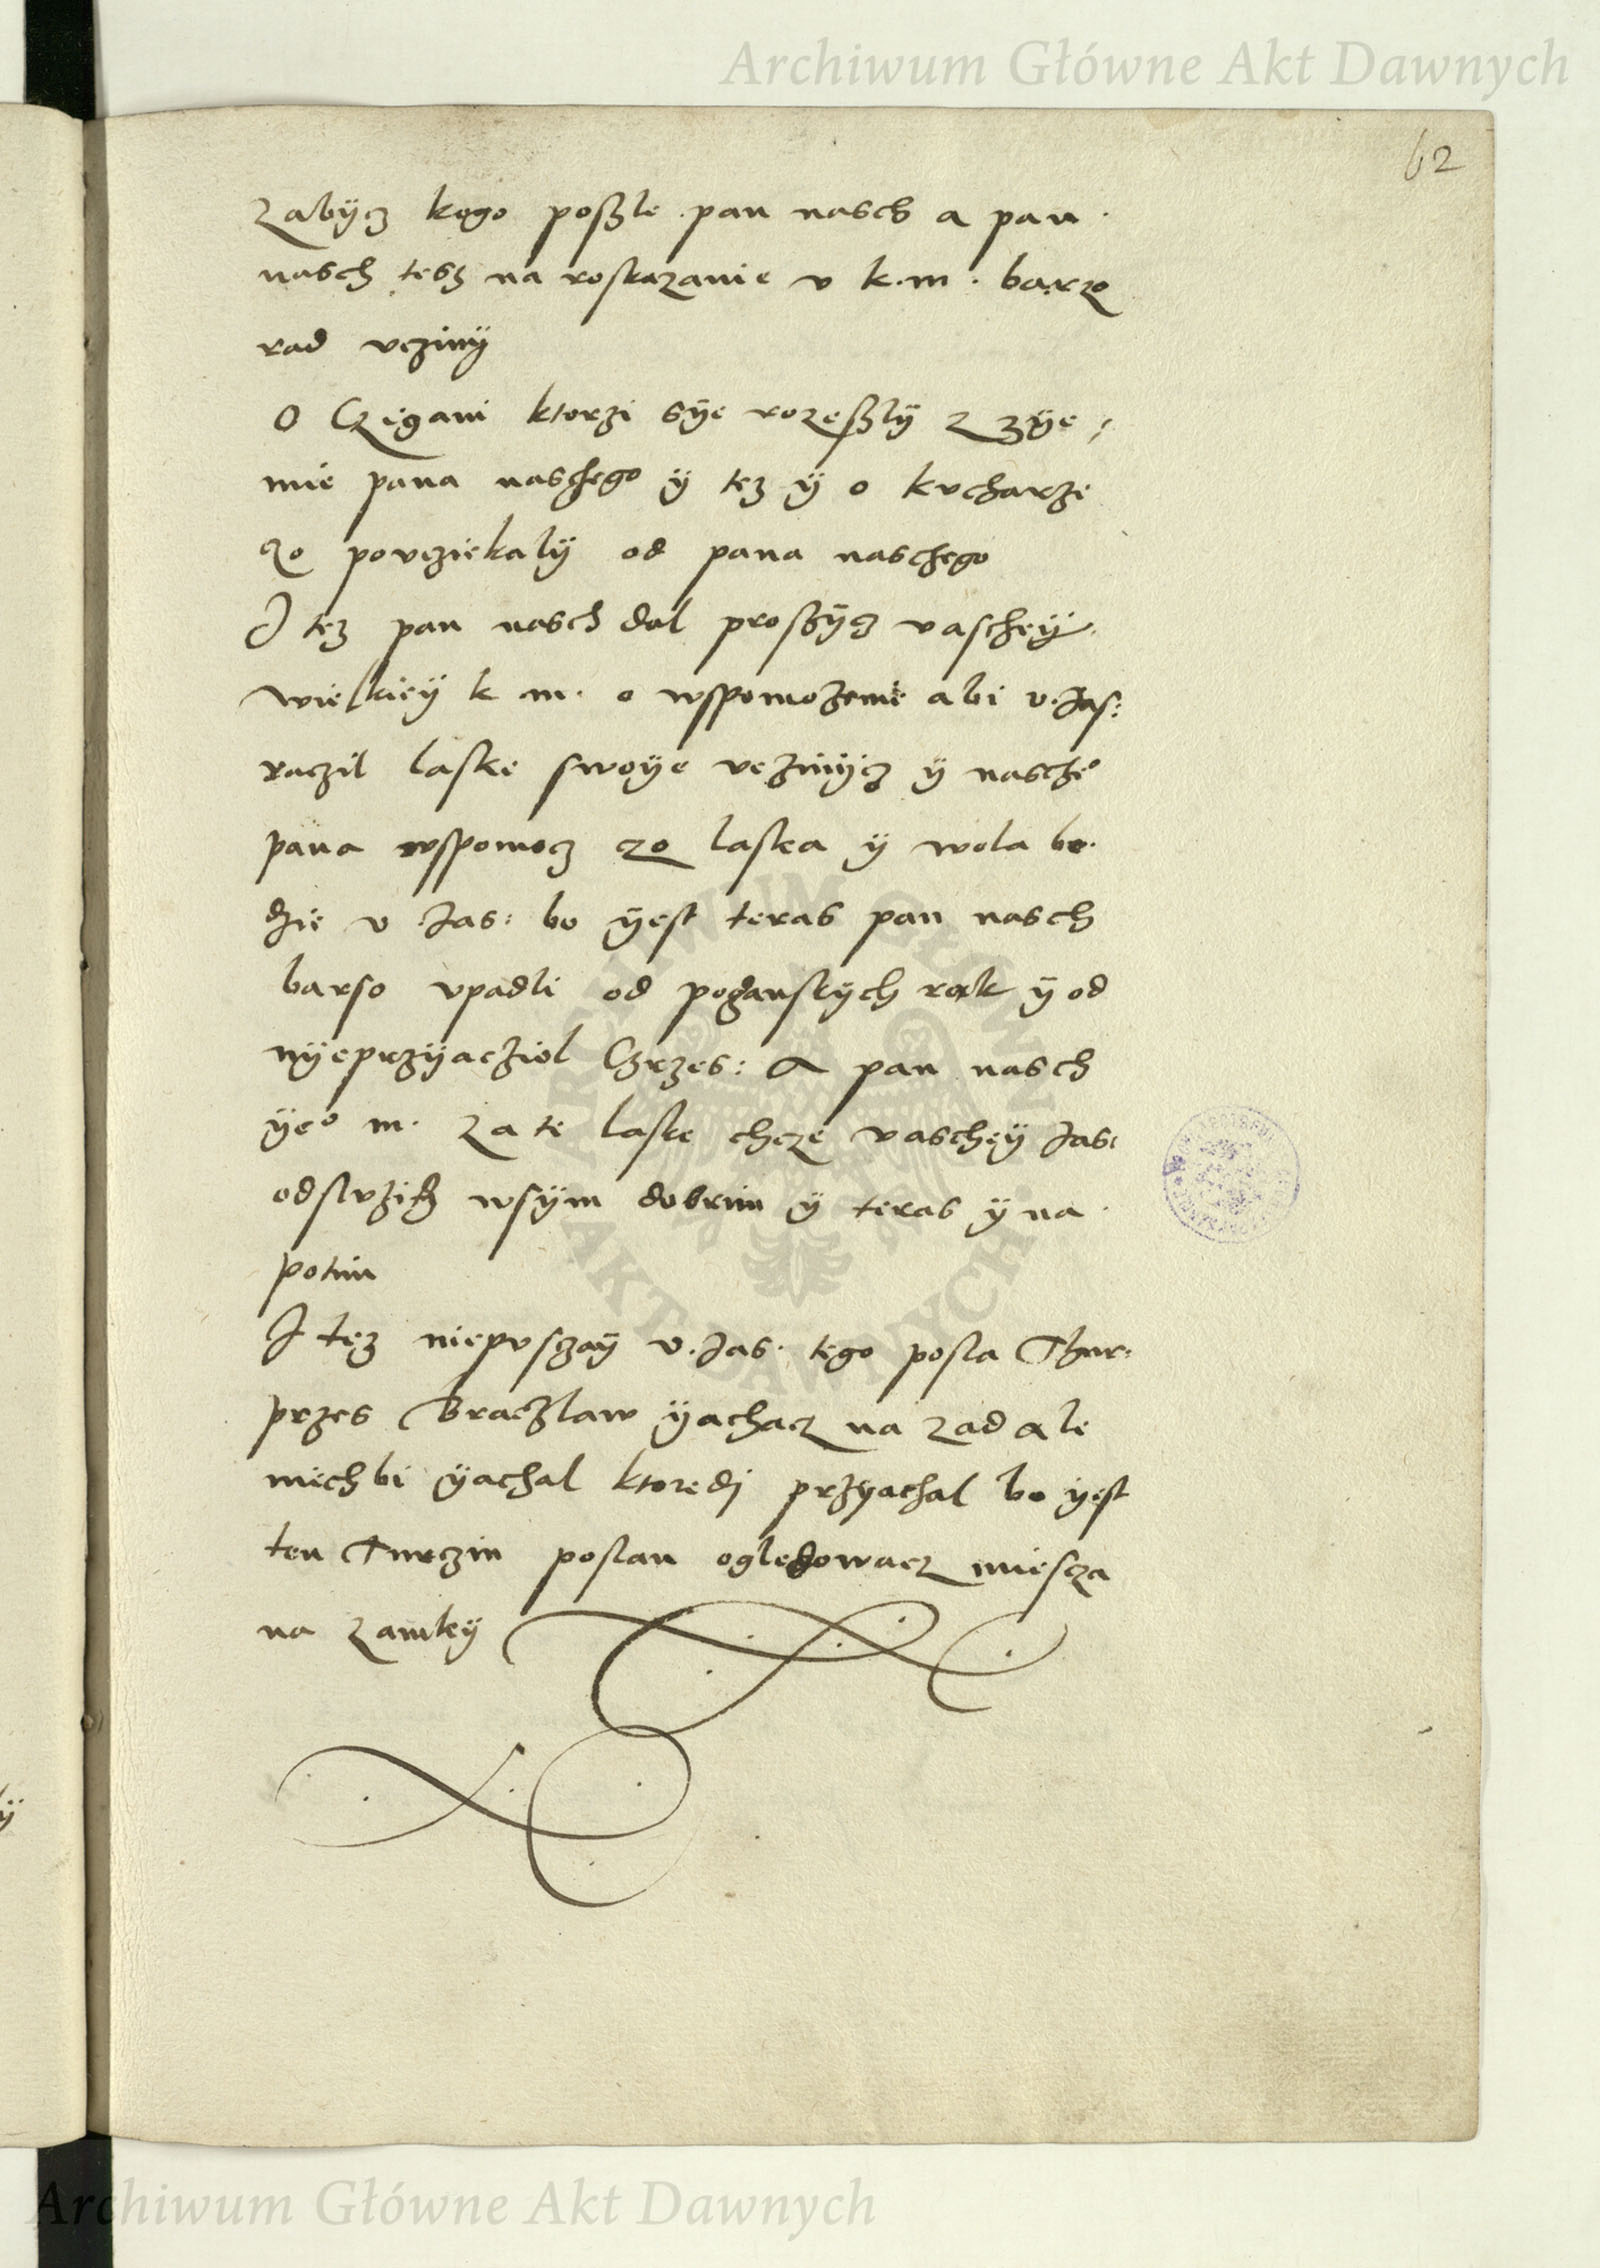 Archiwum Główne Akt Dawnych
62
zabÿcz kogo poszle pan nasch a pan
nasch tesz na roskazanie v k. m. barzo
rad vczinÿ
O Czÿgani ktorzi sÿe rozeszlÿ z zÿe
mie pana naschego ÿ tez ÿ o kvcharze
czo povcziekalÿ od pana naschego
I tez pan nasch dal proszÿcz vascheÿ
wielkieÿ k m. o wspomozenie abi v. Jas:
raczil laske swoÿe vczinÿcz ÿ nascheo
pana wspomocz czo laska ÿ wola be
dzie v Jas: bo ÿest teras pan nasch
barso vpadli od poganskÿch rąk ÿ od
nÿeprzÿacziol Chrzes: A pan nasch
ÿeo m. za te laske chcze vascheÿ Jas:
odslvzicz wsÿm dobrim ÿ teras ÿ na
potim
I tez niepvsczaÿ v. Jas. tego posla Thur:
przes Braczlaw ÿachacz na zad ale
niechbi ÿachal ktoredj przÿachal bo ÿest
ten Turczin poslan ogledowacz miescza
na zamkÿ
ARCHIWUM GŁÓWNE AKT DAWNYCH
Archiwum Główne Akt Dawnych